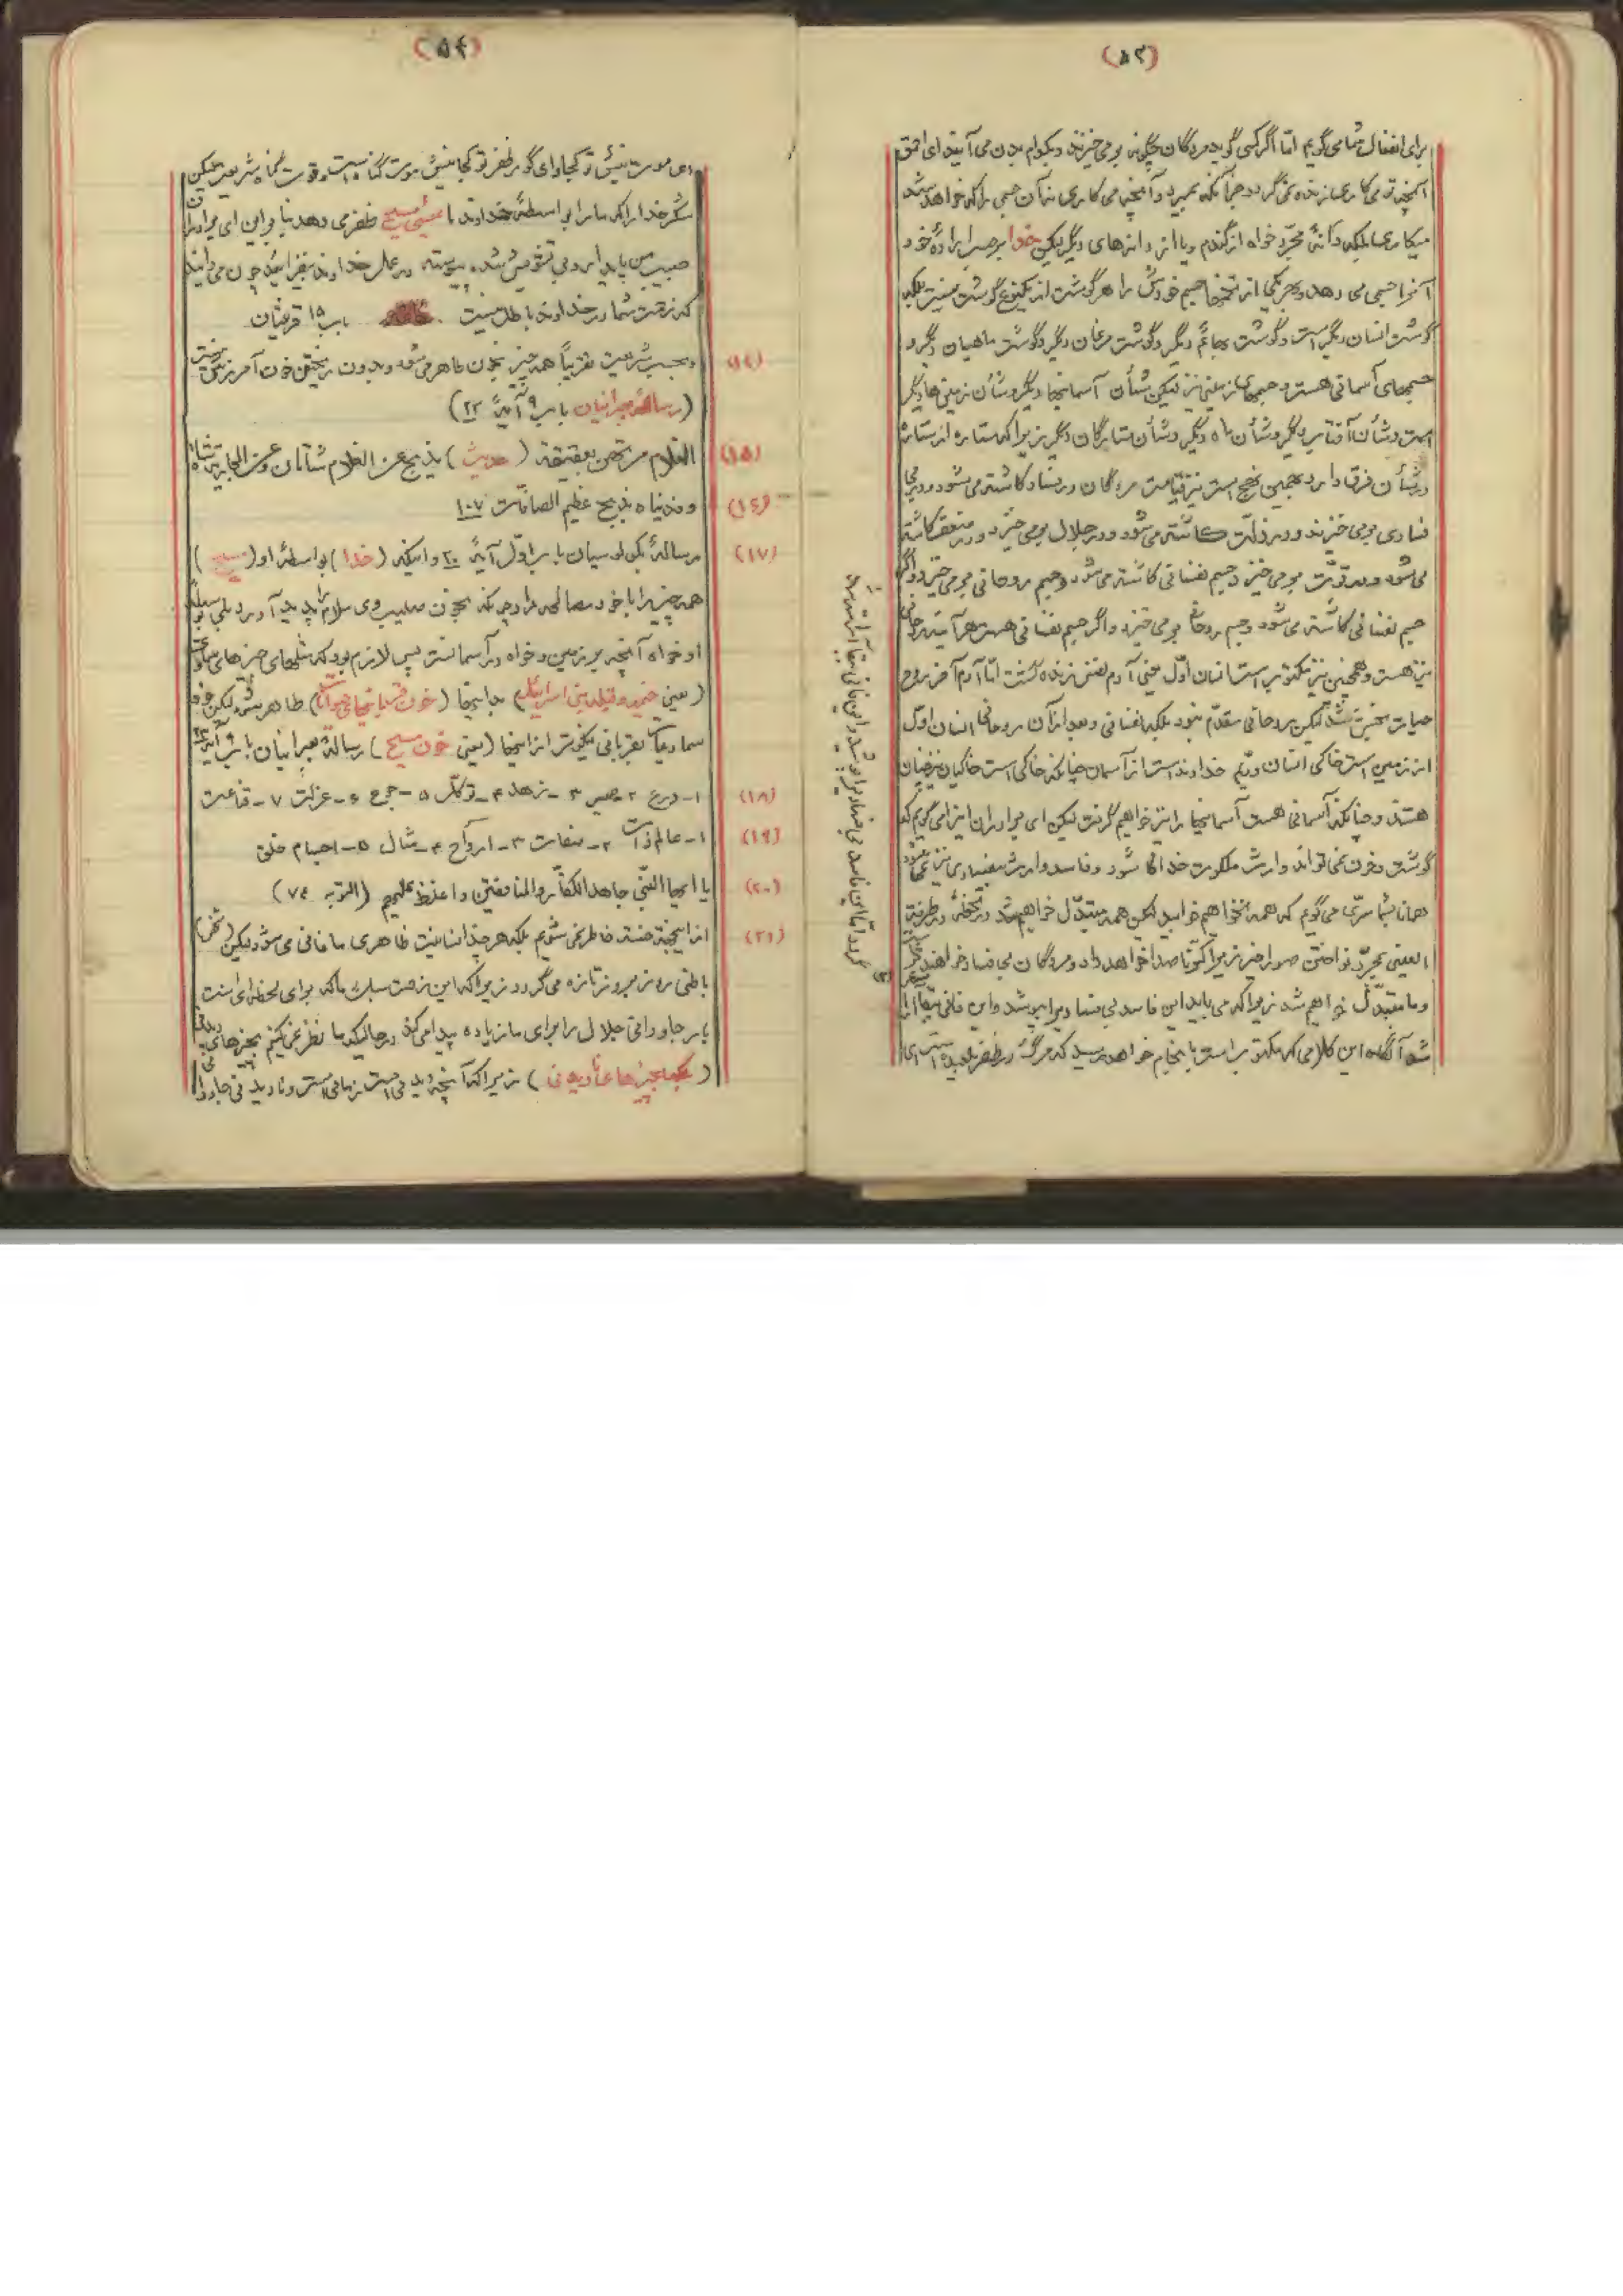 (۵۳)
برای انفعال شما می‌گویم امّا اگر کسی گوید مردگان چگونه برمی‌خیزند و بکدام بدن می‌آیند ای احمق
آنچه تو می‌کاری زنده نمی‌گردد جز آنکه بمیرد و آنچه می‌کاری نه آن جسمی را که خواهد شد
میکاری بلکه دانهٔ مجرّد خواه از گندم و یا از دانه‌های دیگر لیکن خدا برحسب ارادهٔ خود
آنرا جسمی می دهد و بهر یکی از تخمها جسم خودش را هر گوشت از یکنوع گوشت نیست بلکه
گوشت انسان دیگر است و گوشت بهائم دیگر و گوشت مرغان دیگر و گوشت ماهیان دیگر و
جسمهای آسمانی هست و جسمهای زمینی نیز لیکن شأن آسمانیها دیگر و شأن زمینی‌ها دیگر
است و شأن آفتاب دیگر و شأن ماه دیگر و شأن ستارگان دیگر زیرا که ستاره از ستاره
در شأن فرق دارد بهمین نهج است نیز قیامت مردگان در فساد کاشته می‌شود و در بی
فسادی برمی خیزند و در ذلّت کاشته می‌شود و در جلال برمی خیزد و در ضعف کاشته
می‌شود و در قوّت برمی خیزد جسم نفسانی کاشته می‌شود و جسم روحانی برمی خیزد و اگر
جسم نفسانی کاشته می‌شود و جسم روحانی برمی خیزد و اگر جسم نفسانی هست هرآینه روحانی
نیز هست و همچنین نیز مکتوب است انسان اوّل یعنی آدم نفس زنده گشت امّا آدم آخر روح
حیات بخش شد لیکن روحانی مقدّم نبود بلکه نفسانی و بعد از آن روحانی انسان اوّل
از زمین است خاکی انسان دویّم خداوند است از آسمان چنانکه خاکی است خاکیان نیز چنان
هستند و چنانکه آسمانی هست آسمانیها نیز خواهیم گرفت لیکن ای برادران اینرا می گویم که
گوشت و خون نمی تواند وارث ملکوت خدا شود و فاسد وارث بیفسادی نیز نمی‌شود
همانا بشما سرّی می گویم که همه نخواهیم خوابید لیکن همه متبدّل خواهیم شد در لحظهٔ در طرفة
العینی بمجرّد نواختن صور اخیر زیرا کرّنا صدا خواهد داد و مردگان بی فساد خواهند
و ما متبدّل خواهیم شد زیرا که می باید این فاسد بی فسادی را بپوشد و این فانی بقا را
شد آنگاه این کلامی که مکتوب است بانجام خواهد رسید که مرگ در ظفر بلعیده است ای
گردد امّا این فاسد بی فسادی را پوشید و این فانی ببقا آراسته شد
(۵۴)
ای موت نیش تو کجا و ای گور ظفر تو کجا نیش موت گناه است و قوت گناه شریعت لیکن
شکر خدا را که ما را بواسطهٔ خداوند ما عیسی مسیح ظفر می دهد بنابراین ای برادران
حبیب من پایدار و بی تشویش شده پیوسته در عمل خداوند بیفزائید چون می‌دانید
که زحمت شما در خداوند باطل نیست باب ۱۵ قرنتیان
(۱۴) و بحسب شریعت تقریباً همه چیز بخون طاهر می شود و بدون ریختن خون آمرزش نیست
(رسالهٔ عبرانیان باب ۹ آیهٔ ۲۲)
(۱۵) الغلام مرتهن بعقیقته (حدیث) یذبح عن الغلام شاتان و عن الجاریة شاة
(۱۶) و فدیناه بذبح عظیم الصافّات ۱۰۷
(۱۷) رسالهٔ بکولوسیان باب اوّل آیهٔ ۲۰ و اینکه (خدا) بواسطهٔ او (مسیح)
همه چیز را با خود مصالحه داد چونکه بخون صلیب وی سلام را پدید آورد بلی بوسیلهٔ
او خواه آنچه بر زمین و خواه در آسمانست پس لازم بود که مثلهای چیزهای سماوی
(یعنی خیمه و قبله بنی اسرائیل) بانیها (خون قربانیها حیوانات) طاهر شود لیکن خود
سماویات بقربانی نیکوتر از اینها (یعنی خون مسیح) رسالهٔ بعبرانیان باب ۹ آیهٔ ۲۳
(۱۸) ۱- ورع ۲- صبر ۳- زهد ۴- توکّل ۵- جوع ۶- عزلت ۷- قناعت
(۱۹) ۱- عالم ذات ۲- صفات ۳- ارواح ۴- مثال ۵- اجسام خلق
(۲۰) یا ایها النّبی جاهد الکفّار والمنافقین واغلظ علیهم (التوبه ۷۴)
(۲۱) از اینجهة خسته خاطر نمی شویم بلکه هر چند انسانیت ظاهری ما فانی می شود لیکن
باطنی روز بروز تازه می گردد زیرا که این زحمت سبک ما که برای لحظه‌ای است
بار جاودانی جلال را برای ما زیاده پیدا می‌کند در حالیکه ما نظر نمی‌کنیم بچیزهای دیدنی
(بلکه بچیزهای نادیدنی) زیرا که آنچه دیدنی است زمانی است و نادیدنی جاودانی